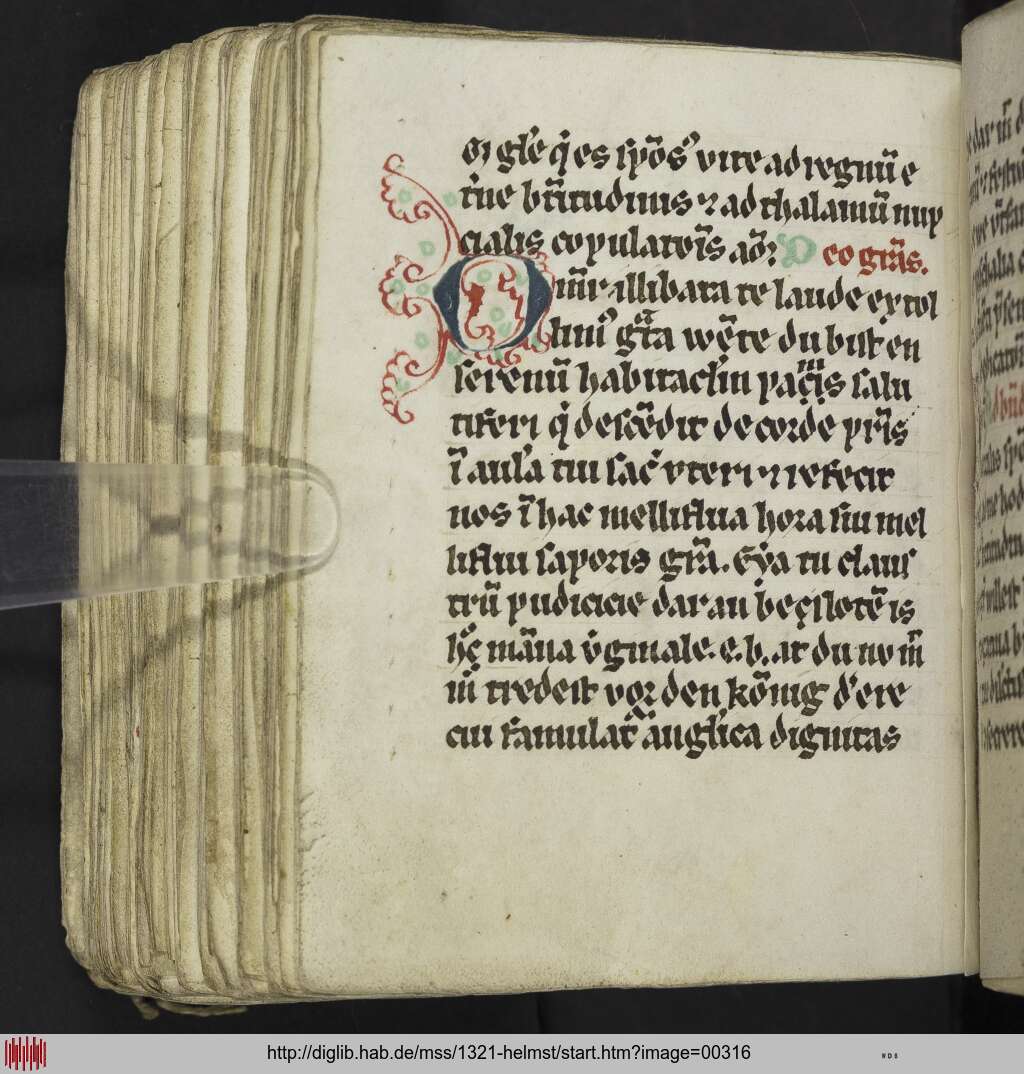 oꝛ gl'e q̇ es spōs' vite ad regnū e
t'ne bt̄itudinis ⁊ ad thalamū nup
cialis copulatōis aō? Deo gr̄as.
O īm̄r illibata te laude extol
limꝰ gͣta wēte du bist en
serenū habitac'lm pac̄is salu
tiferi q̇ descēdit de corde pr̄is
ī aul'a tui sac̄ vteri ⁊ refecit
nos ī hac melliflua hora sui mel
liflui saporis gr̄a. Eya tu claus
trū pudicicie dar an besl̄otē is
h̊ māna v̇ginale. e. b. at du nu m̄
in tredest vor den kȫnig d'ere
cui famulat̄ angl'ica dignitas
http://diglib.hab.de/mss/1321-helmst/start.htm?image=00316